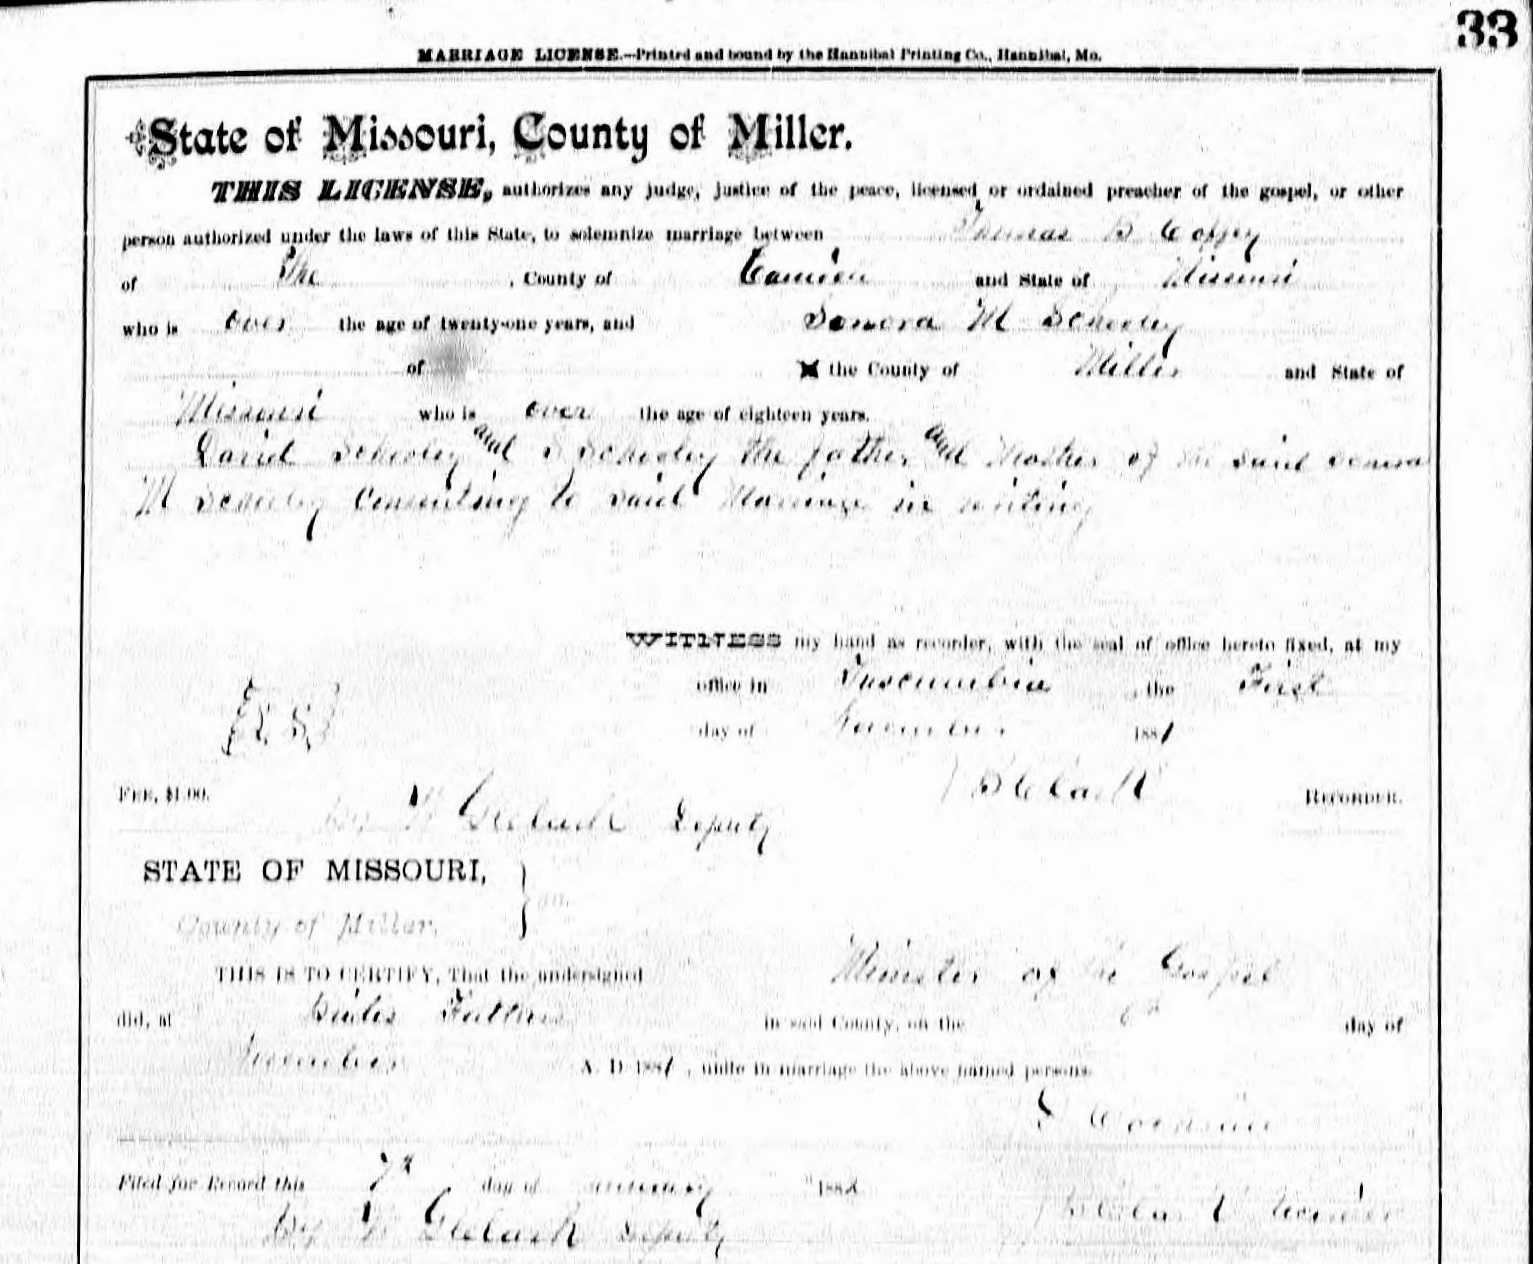 33
MARRIAGE LICENSE.—Printed and bound by the Hannibal Printing Co., Hannibal, Mo.
State of Missouri, County of Miller.
THIS LICENSE, authorizes any judge, justice of the peace, licensed or ordained preacher of the gospel, or other
person authorized under the laws of this State, to solemnize marriage between Thomas B Coffey
of The , County of Camden and State of Missouri
who is over the age of twenty-one years, and Sonora M Schooley
of the County of Miller and State of
Missouri who is over the age of eighteen years.
David Schooley and S Schooley the father and Mother of the said Sonora
M Schooley Consenting to said Marriage in writing
WITNESS my hand as recorder, with the seal of office hereto fixed, at my
office in Tuscumbia , the First
{L.S.} day of November 1881
Clark
FEE, $1.00. RECORDER.
by Deputy
STATE OF MISSOURI,
County of Miller. } ss.
THIS IS TO CERTIFY, That the undersigned Minister of the Gospel
did, at Brides Fathers in said County, on the 6th day of
November A. D. 1881, unite in marriage the above named persons.
Filed for Record this 7th day of January 1882
By Deputy Clark Recorder